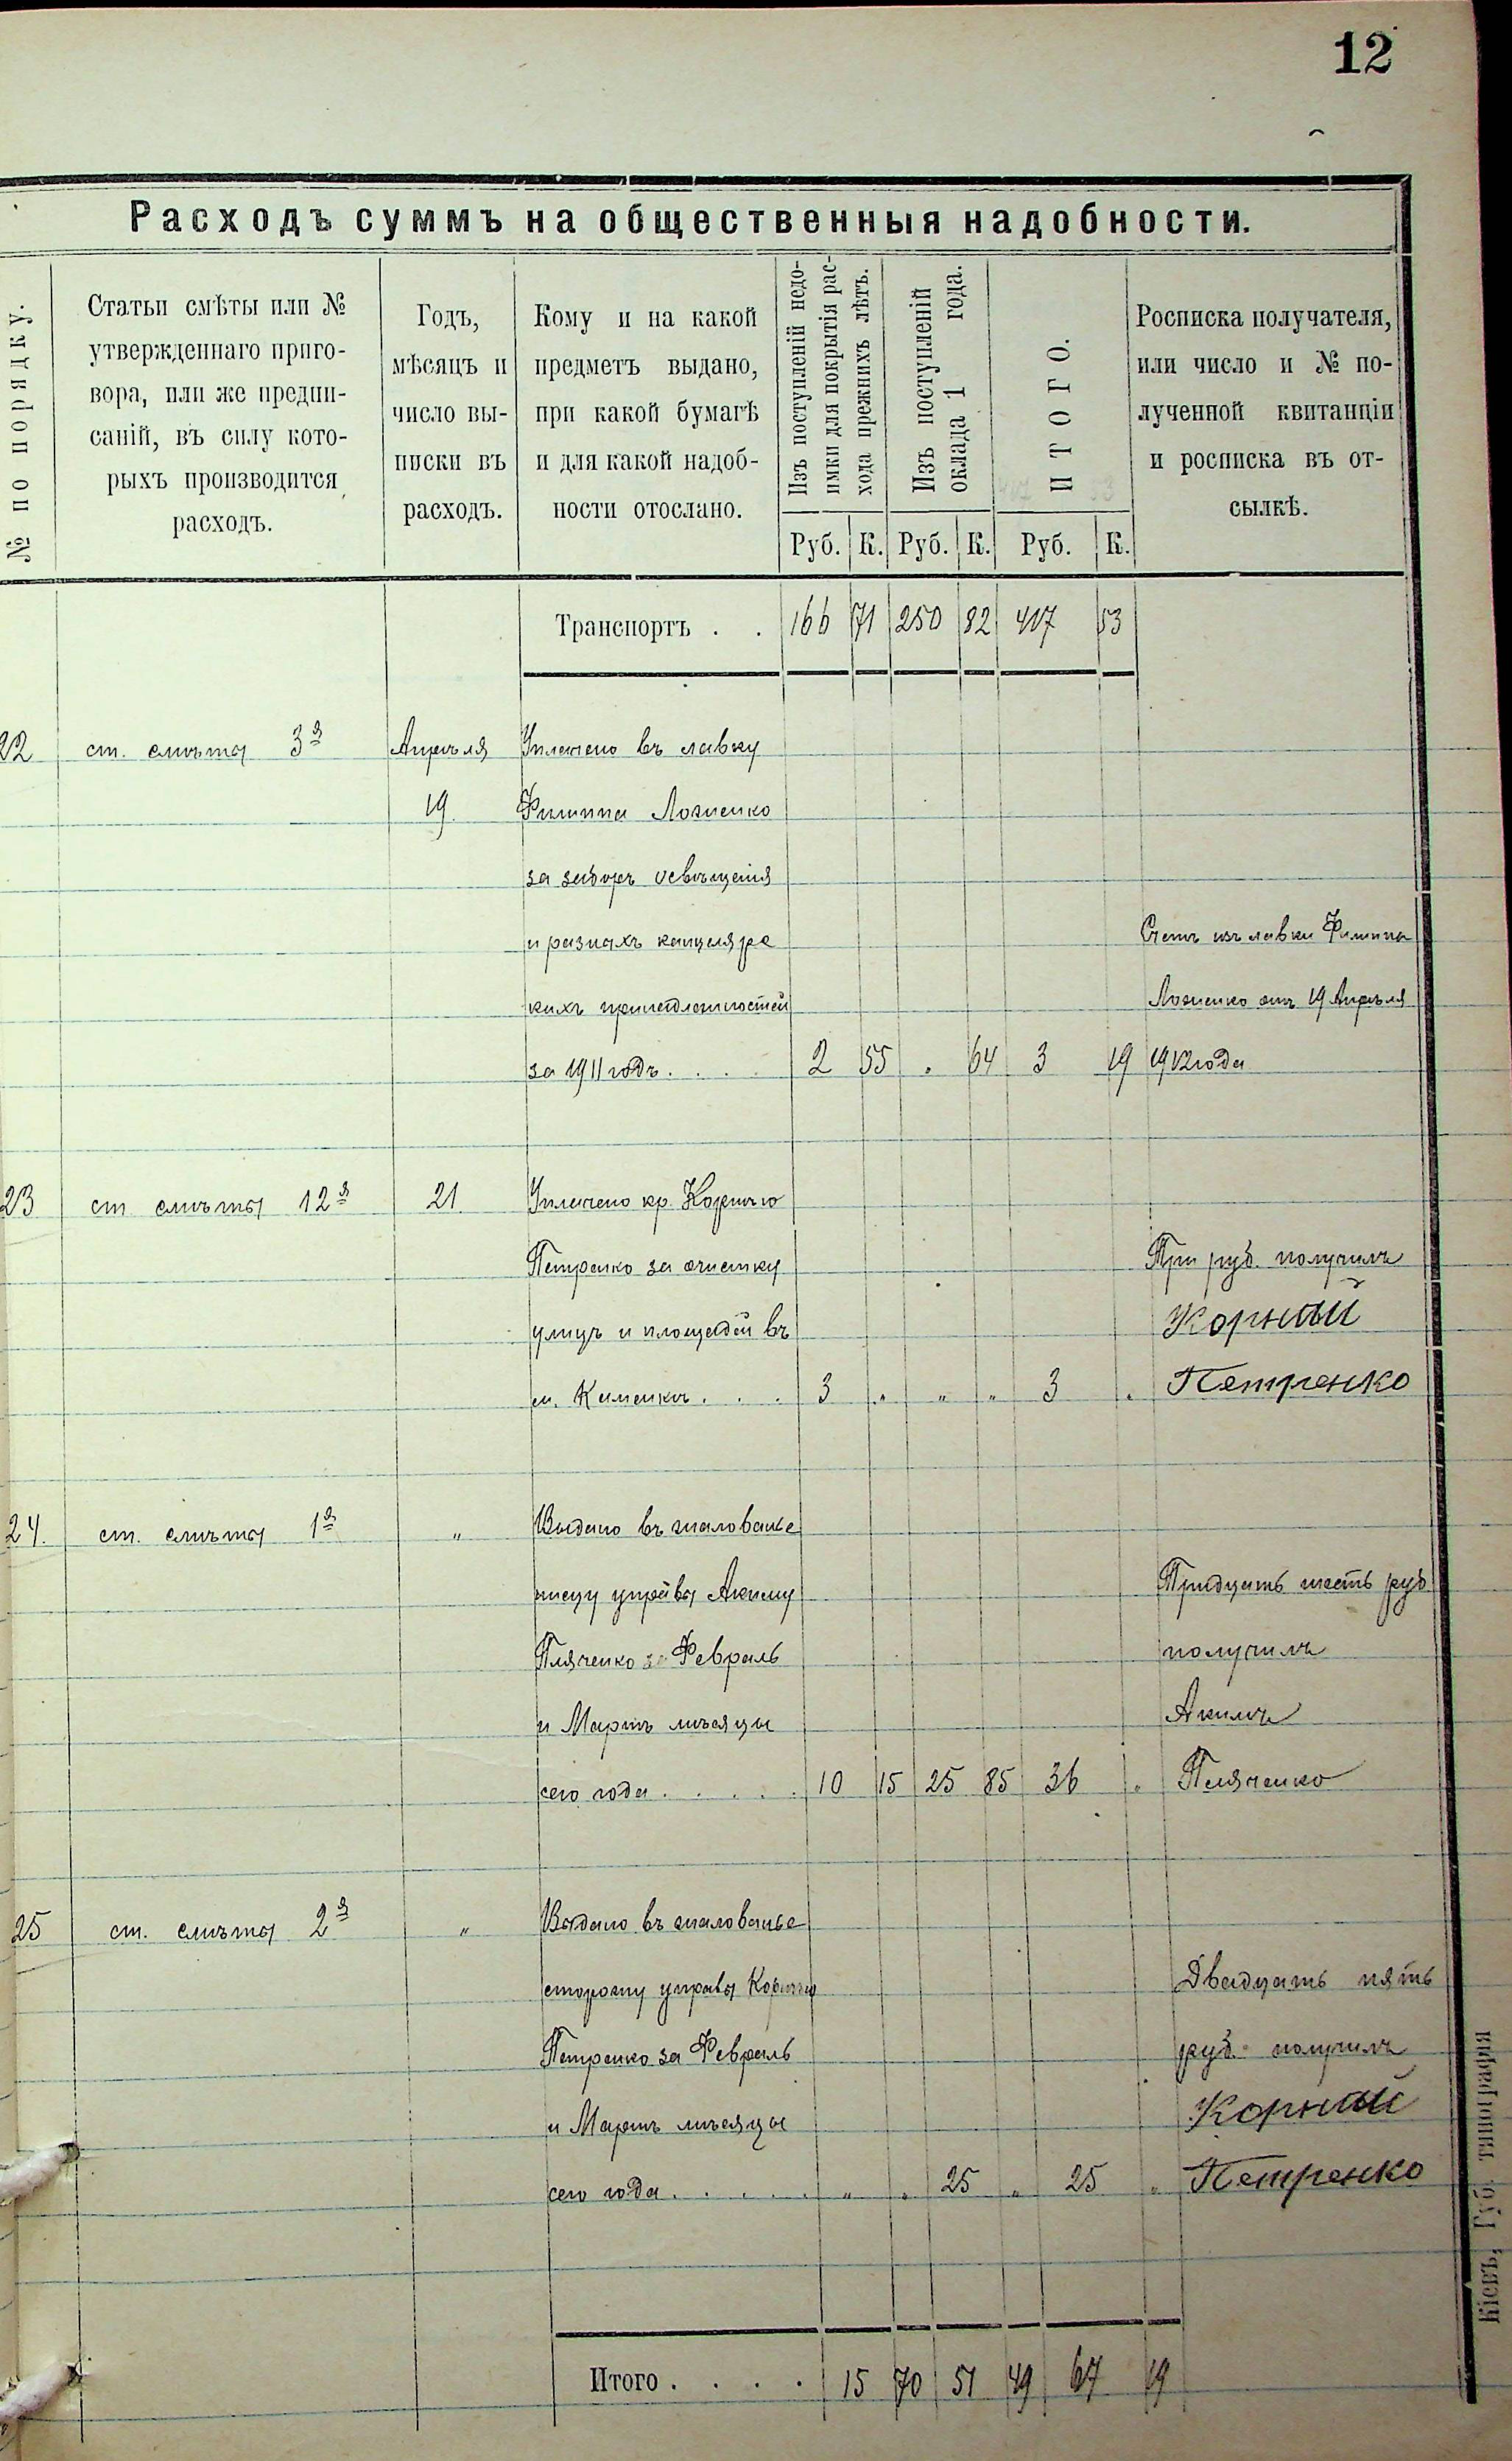 12
Расходъ суммъ на общественныя надобности.
№ по порядку.
Статьи смѣты или №
утвержденнаго приго-
вора, или же предпи-
саній, въ силу кото-
рыхъ производится
расходъ.
Годъ,
мѣсяцъ и
число вы-
писки въ
расходъ.
Кому и на какой
предметъ выдано,
при какой бумагѣ
и для какой надоб-
ности отослано.
Изъ поступленій недо-
имки для покрытія рас-
хода прежнихъ лѣтъ.
Изъ поступленій
оклада 1 года.
ИТОГО.
Росписка получателя,
или число и № по-
лученной квитанціи
и росписка въ от-
сылкѣ.
Руб. К. Руб. К. Руб. К.
Транспортъ . . 166 71 250 82 417 53
22 ст. смѣты 3я Апрѣля Уплачено въ лавку
19. Филиппа
за заборъ освѣщенія
и разныхъ канцеляре Счетъ изъ лавки Филиппа
кихъ принадлежностей отъ 19 Апрѣля
за 1911 годъ . . . . 2 55 . 64 3 19 1912 года
23 ст смѣты 12я 21. Уплачено кр. Корнѣю
Петренко за очистку Три руб. получилъ
улицъ и площадей въ Корнѣй
м. Каменкѣ . . . 3 „ „ „ 3 . Петренко
24. ст. смѣты 1я „ Выдано въ жалованье
писцу управы Акиму Тридцать шесть руб
Пляченко за Февраль получилъ
и Мартъ мѣсяцы Акимъ
сего года . . . . . 10 15 25 85 36 „ Пляченко
25 ст. смѣты 2я „ Выдано въ жалованье
сторожу управы Корнѣю Двадцать пять
Петренко за Февраль руб. получилъ
и Мартъ мѣсяцы Корнѣй
сего года . . . . . „ „ 25 „ 25 „ Петренко
Итого . . . . 15 70 51 49 67 19
Кіевъ, Губ. типографія